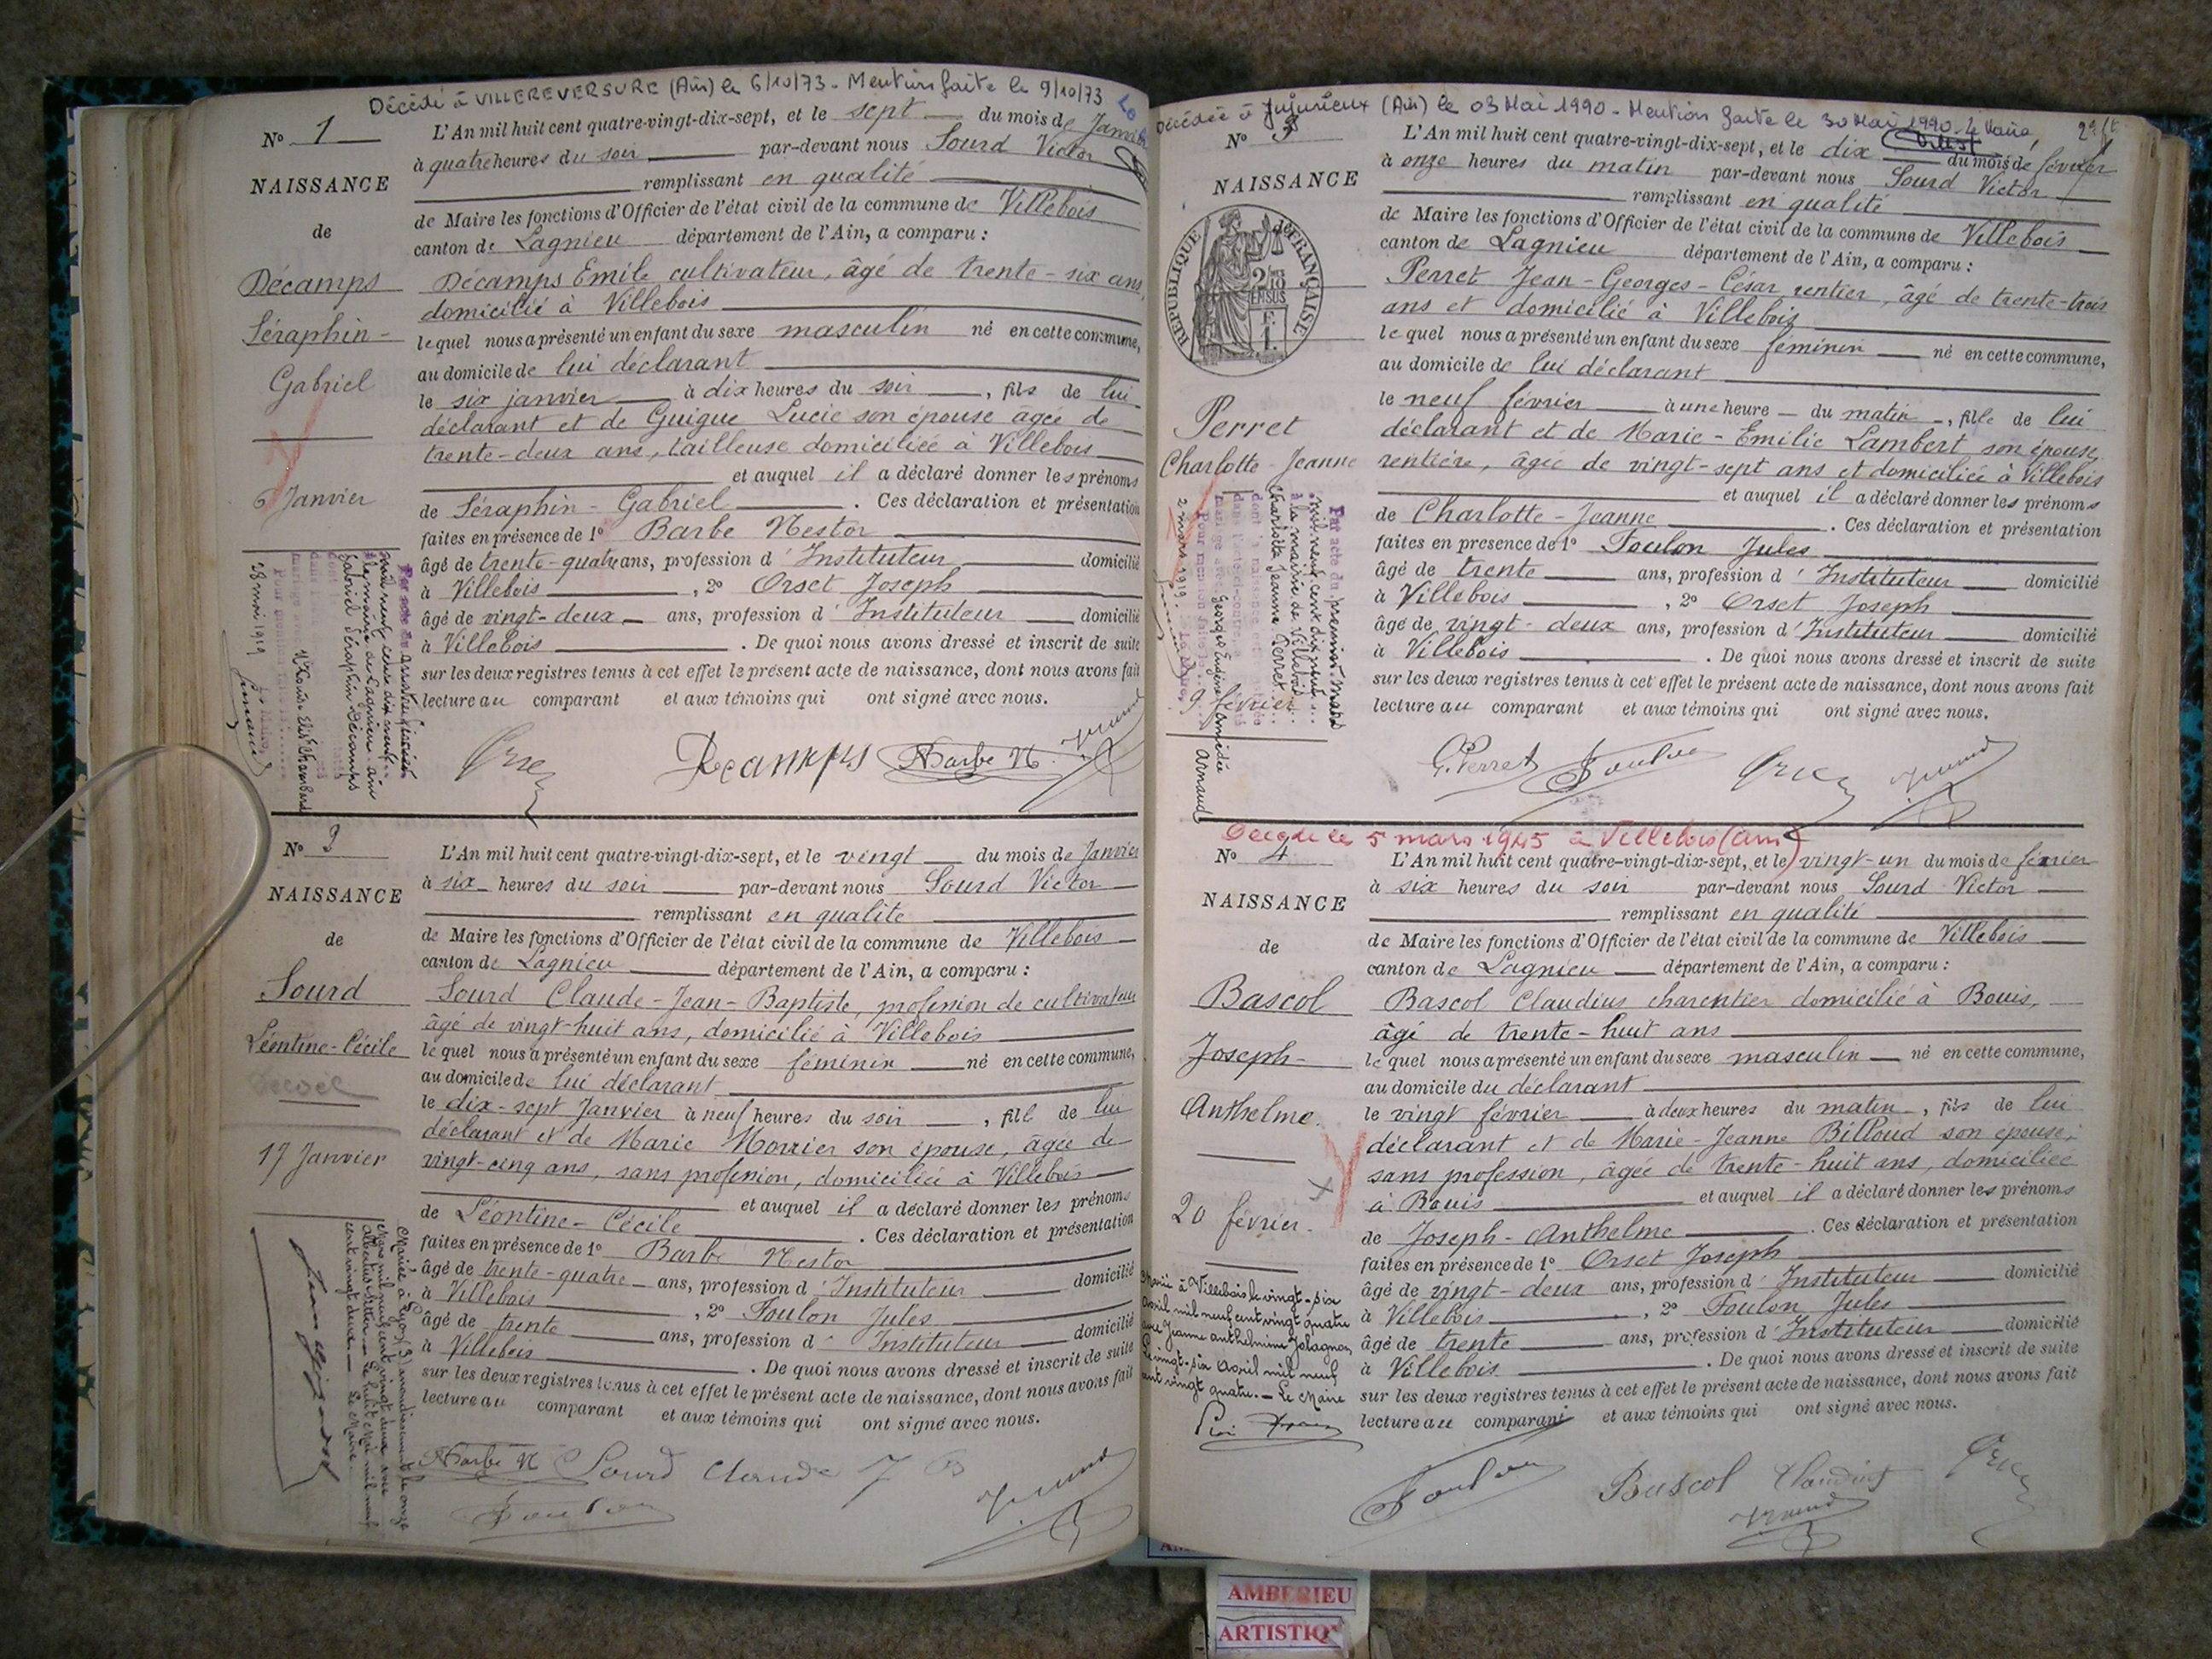 Décédé à VILLEREVERSURE (Ain) le 6/10/73 - Mention faite le 9/10/73
N° 1
NAISSANCE
de
Décamps
Séraphin-
Gabriel
6 Janvier
L'An mil huit cent quatre-vingt-dix-sept, et le sept du mois de Janvier
à quatre heures du soir par-devant nous Sourd Victor
remplissant en qualité
de Maire les fonctions d'Officier de l'état civil de la commune de Villebois
canton de Lagnieu département de l'Ain, a comparu :
Décamps Emile cultivateur, âgé de trente-six ans,
domicilié à Villebois
lequel nous a présenté un enfant du sexe masculin né en cette commune,
au domicile de lui déclarant
le six janvier à dix heures du soir, fils de lui
déclarant et de Guigue Lucie son épouse âgée de
trente-deux ans, tailleuse domiciliée à Villebois
et auquel il a déclaré donner les prénoms
de Séraphin-Gabriel. Ces déclaration et présentation
faites en présence de 1° Barbe Nestor
âgé de trente-quatre ans, profession d'Instituteur domicilié
à Villebois, 2° Orset Joseph
âgé de vingt-deux ans, profession d'Instituteur domicilié
à Villebois. De quoi nous avons dressé et inscrit de suite
sur les deux registres tenus à cet effet le présent acte de naissance, dont nous avons fait
lecture au comparant et aux témoins qui ont signé avec nous.
mil neuf cent dix neuf
à la mairie de Lagnieu Ain
Gabriel Séraphin Décamps
28 mai 1919
Orset Decamps Barbe N.
N° 2
NAISSANCE
de
Sourd
Léontine-Cécile
17 Janvier
L'An mil huit cent quatre-vingt-dix-sept, et le vingt du mois de Janvier
à six heures du soir par-devant nous Sourd Victor
remplissant en qualité
de Maire les fonctions d'Officier de l'état civil de la commune de Villebois
canton de Lagnieu département de l'Ain, a comparu :
Sourd Claude-Jean-Baptiste, profession de cultivateur
âgé de vingt-huit ans, domicilié à Villebois
lequel nous a présenté un enfant du sexe féminin né en cette commune,
au domicile de lui déclarant
le dix-sept Janvier à neuf heures du soir, fille de lui
déclarant et de Marie Morrier son épouse, âgée de
vingt-cinq ans, sans profession, domiciliée à Villebois
et auquel il a déclaré donner les prénoms
de Léontine-Cécile. Ces déclaration et présentation
faites en présence de 1° Barbe Nestor
âgé de trente-quatre ans, profession d'Instituteur domicilié
à Villebois, 2° Foulon Jules
âgé de trente ans, profession d'Instituteur domicilié
à Villebois. De quoi nous avons dressé et inscrit de suite
sur les deux registres tenus à cet effet le présent acte de naissance, dont nous avons fait
lecture au comparant et aux témoins qui ont signé avec nous.
Mariée à Lyon (3) arrondissement le onze
Mars mil neuf cent vingt deux avec
le huit Mai mil neuf
cent vingt deux — Le Maire
Barbe N Sourd Claude J B
Foulon
Décédée à Jujurieux (Ain) le 03 Mai 1990 - Mention faite le 30 Mai 1990 - Le Maire,
N° 3
NAISSANCE
REPUBLIQUE FRANÇAISE
2/10 EN SUS
F. 1.
Perret
Charlotte-Jeanne
9 février
L'An mil huit cent quatre-vingt-dix-sept, et le dix du mois de février
à onze heures du matin par-devant nous Sourd Victor
remplissant en qualité
de Maire les fonctions d'Officier de l'état civil de la commune de Villebois
canton de Lagnieu département de l'Ain, a comparu :
Perret Jean-Georges-César rentier, âgé de trente-trois
ans et domicilié à Villebois
lequel nous a présenté un enfant du sexe féminin né en cette commune,
au domicile de lui déclarant
le neuf février à une heure du matin, fille de lui
déclarant et de Marie-Emilie Lambert son épouse,
rentière, âgée de vingt-sept ans et domiciliée à Villebois
et auquel il a déclaré donner les prénoms
de Charlotte-Jeanne. Ces déclaration et présentation
faites en présence de 1° Foulon Jules
âgé de trente ans, profession d'Instituteur domicilié
à Villebois, 2° Orset Joseph
âgé de vingt-deux ans, profession d'Instituteur domicilié
à Villebois. De quoi nous avons dressé et inscrit de suite
sur les deux registres tenus à cet effet le présent acte de naissance, dont nous avons fait
lecture au comparant et aux témoins qui ont signé avec nous.
Par acte du premier Mars
mil neuf cent dix neuf
à la mairie de Villebois
Charlotte Jeanne Perret
Arnaud
2 mars 1919.
G. Perret Foulon Orset
Décédé le 5 mars 1945 à Villebois (Ain)
N° 4
NAISSANCE
de
Bascol
Joseph-
Anthelme.
20 février.
L'An mil huit cent quatre-vingt-dix-sept, et le vingt-un du mois de février
à six heures du soir par-devant nous Sourd Victor
remplissant en qualité
de Maire les fonctions d'Officier de l'état civil de la commune de Villebois
canton de Lagnieu département de l'Ain, a comparu :
Bascol Claudius charentier domicilié à Bouis,
âgé de trente-huit ans
lequel nous a présenté un enfant du sexe masculin né en cette commune,
au domicile du déclarant
le vingt février à deux heures du matin, fils de lui
déclarant et de Marie-Jeanne Billoud son épouse,
sans profession, âgée de trente-huit ans, domiciliée
à Bouis et auquel il a déclaré donner les prénoms
de Joseph-Anthelme. Ces déclaration et présentation
faites en présence de 1° Orset Joseph
âgé de vingt-deux ans, profession d'Instituteur domicilié
à Villebois, 2° Foulon Jules
âgé de trente ans, profession d'Instituteur domicilié
à Villebois. De quoi nous avons dressé et inscrit de suite
sur les deux registres tenus à cet effet le présent acte de naissance, dont nous avons fait
lecture au comparant et aux témoins qui ont signé avec nous.
Marié à Villebois le vingt-six
avril mil neuf cent vingt quatre
avec Jeanne anthelmine
Le vingt-six avril mil neuf
cent vingt quatre. — Le Maire
Foulon Bascol Claudius Orset
AMBERIEU
ARTISTIQ